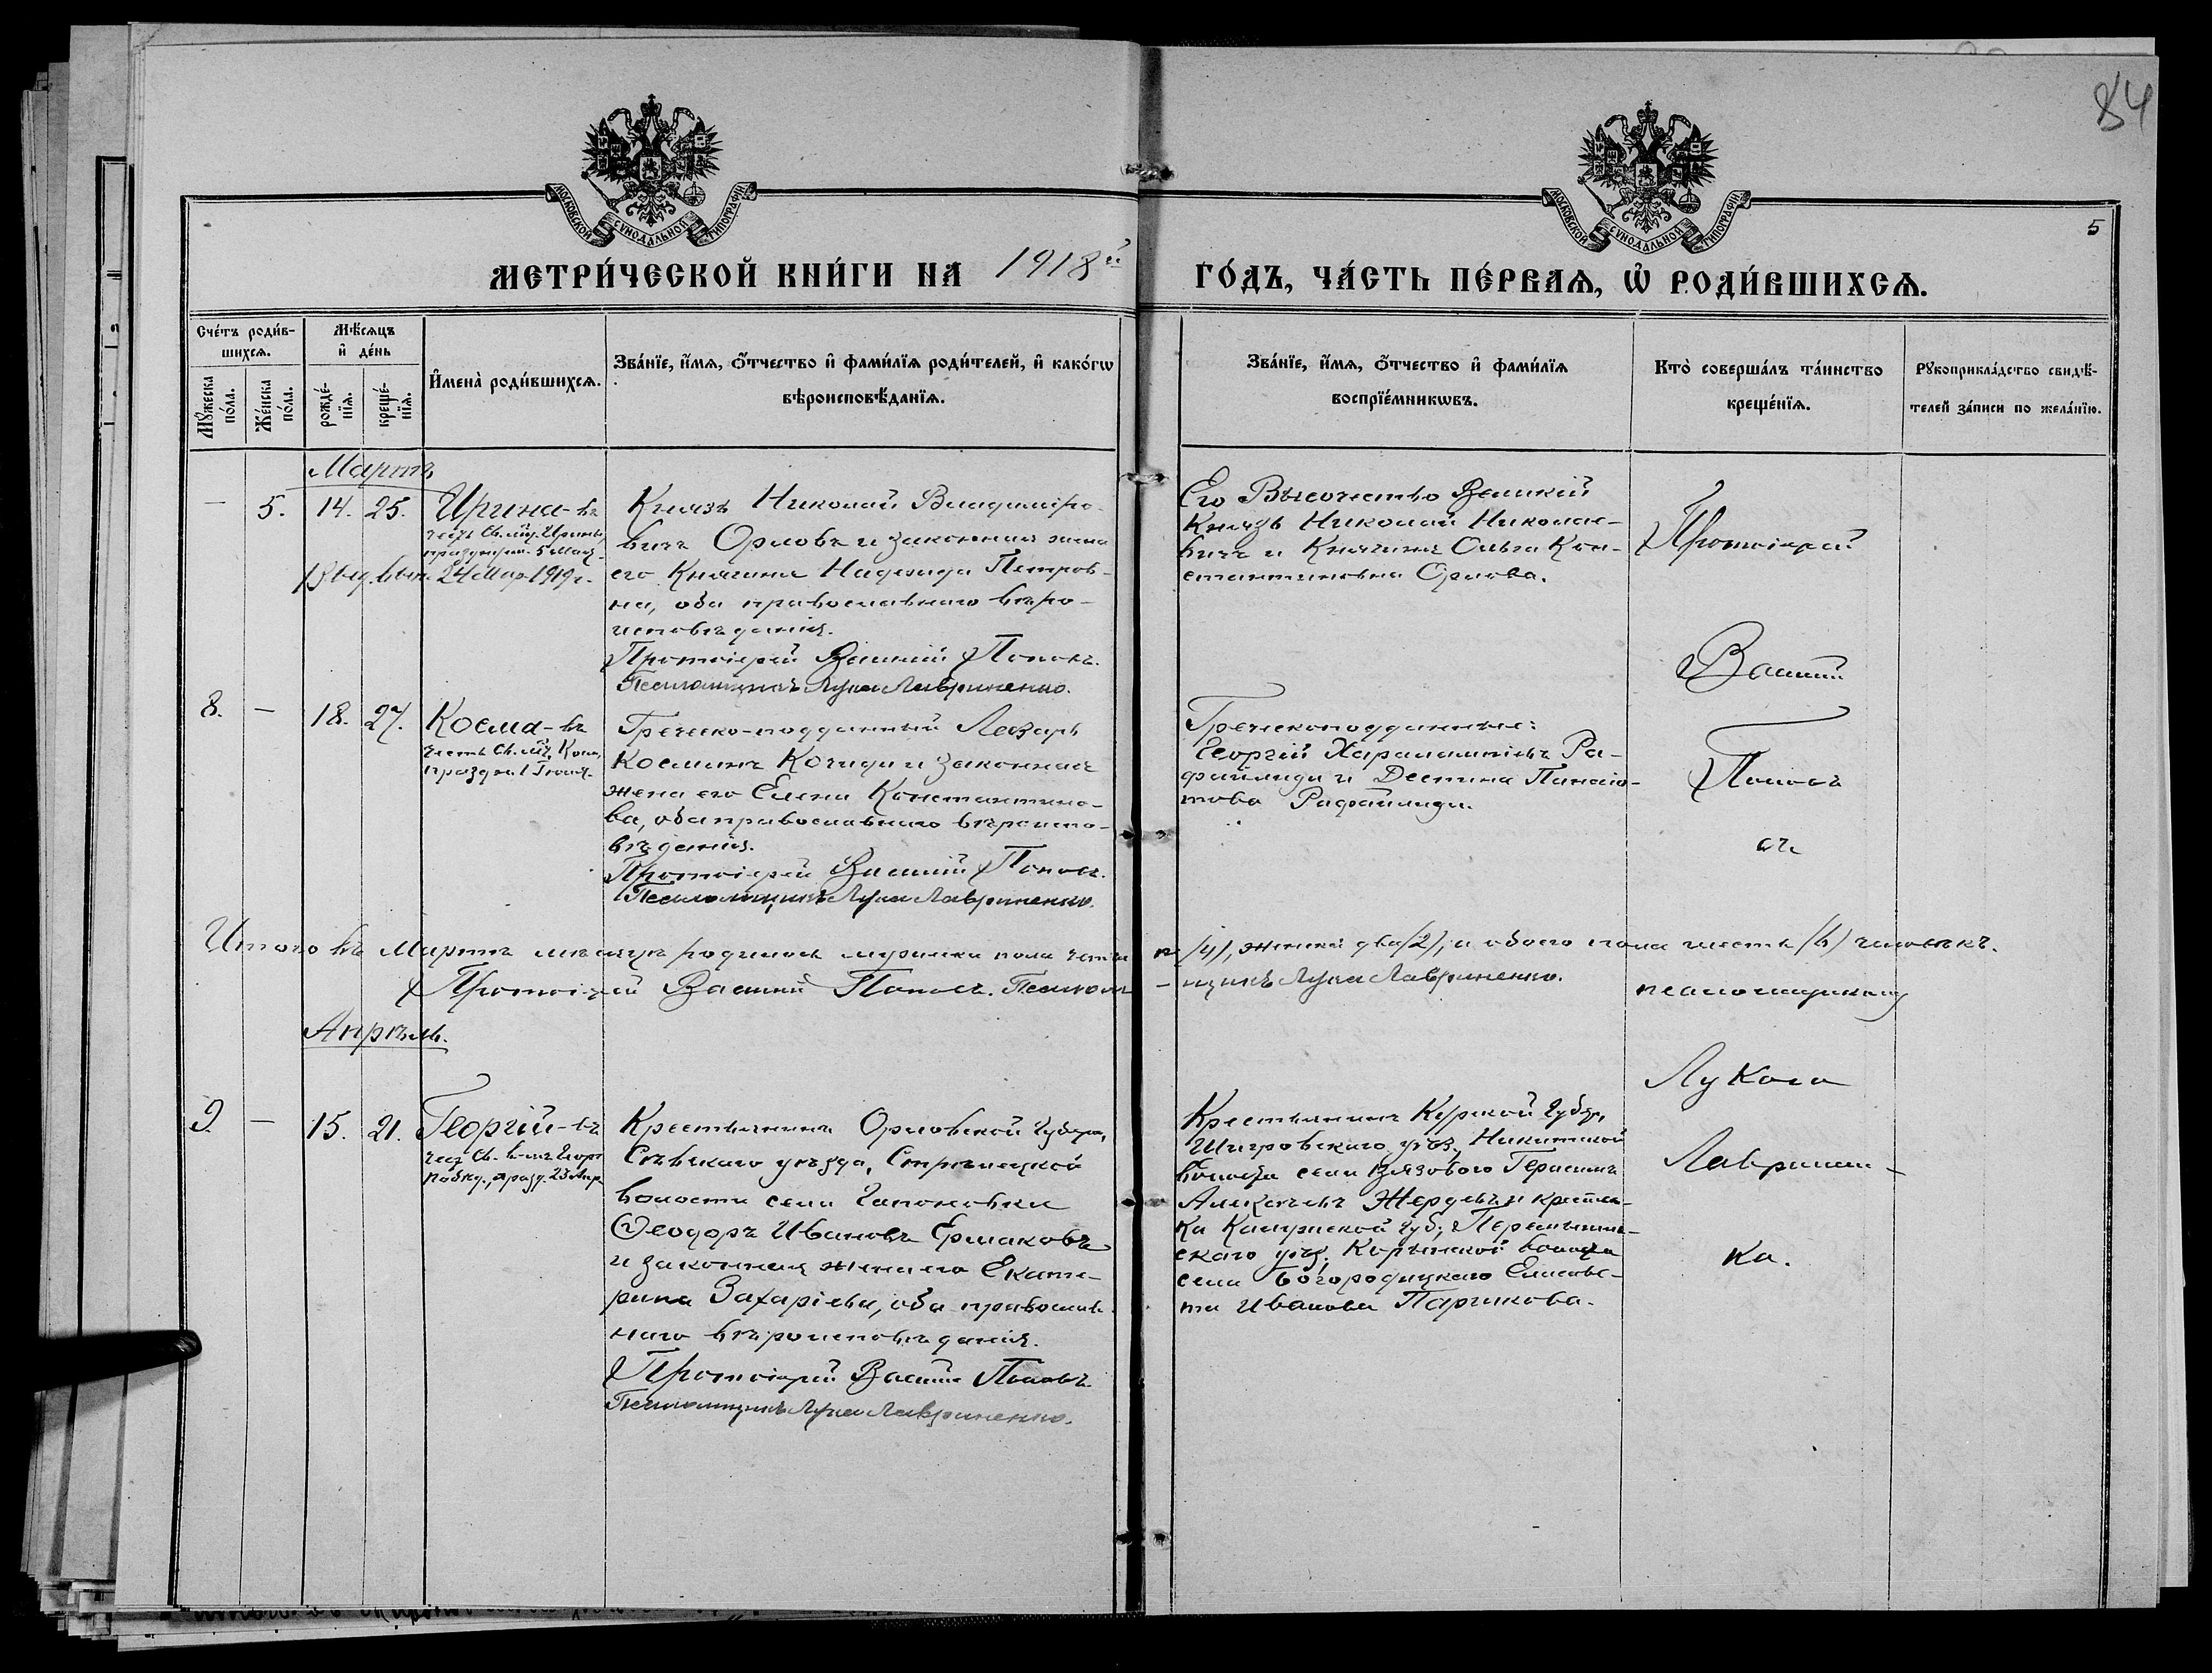 84
МОСКОВСКОЙ СѴНОДАЛЬНОЙ ТИПОГРАФІИ
МОСКОВСКОЙ СѴНОДАЛЬНОЙ ТИПОГРАФІИ
5
МЕТРИ́ЧЕСКОЙ КНИ́ГИ НА 1918й ГО́ДЪ, ЧА́СТЬ ПЕ́РВАѦ, Ѡ҆ РОДИ́ВШИХСѦ.
Сче́тъ роди́в-
шихсѧ.
Мѹ́жеска по́ла.
Же́нска по́ла.
Мѣ́сѧцъ
и҆ де́нь
рожде́-
нїѧ.
креще́-
нїѧ.
И҆мена̀ роди́вшихсѧ.
Зва́нїе, и҆́мѧ, ѻ҆́тчество и҆ фами́лїѧ роди́телей, и҆ како́гѡ
вѣроисповѣ́данїѧ.
Зва́нїе, и҆́мѧ, ѻ҆́тчество и҆ фами́лїѧ
воспрїе́мникѡвъ.
Кто̀ соверша́лъ та́инство
креще́нїѧ.
Рѹкоприкла́дство свидѣ́-
телей за́писи по жела́нїю.
Мартъ
— 5. 14. 25. Ирина - въ
честь Св. муч. Ирины,
празднуем. 5 Мая
24 Мар. 1919 г.
Князь Николай Владиміро-
вичъ Орловъ и законная жена
его Княгиня Надежда Петров-
на, оба православнаго вѣро-
исповѣданія.
Протоіерей Василій Поповъ.
Псаломщикъ Лука Лавриненко.
Его Высочество Великій
Князь Николай Николае-
вичъ и Княгиня Ольга Кон-
стантиновна Орлова.
Протоіерей
Василій
Поповъ
съ
псаломщикомъ
Лукою
Лавринен-
ко.
8. — 18. 27. Косма - въ
честь Св. мч. Косм.,
праздн. 1 Іюля.
Греческо-подданный Лазарь
Косминъ Кочиди и законная
жена его Елена Константино-
ва, оба православнаго вѣроиспо-
вѣданія.
Протоіерей Василій Поповъ.
Псаломщикъ Лука Лавриненко.
Греческоподданные:
Георгій Харалампіевъ Ра-
фаилиди и Деспина Панаіо-
това Рафаилиди.
Итого въ Мартѣ мѣсяцѣ родилось мужска пола четыре /4/, женска два /2/, а обоего пола шесть /6/ человѣкъ.
Протоіерей Василій Поповъ. Псалом-щикъ Лука Лавриненко.
Апрѣль.
9. — 15. 21. Георгій - въ
чест. Св. Георг.
побѣд., празд. 23 Апр.
Крестьянинъ Орловской губерн.,
Сѣвскаго уѣзда, Стрѣлецкой
волости села Гапоновки
Ѳеодоръ Ивановъ Ермаковъ
и законная жена его Екате-
рина Захаріева, оба православ-
наго вѣроисповѣданія.
Протоіерей Василій Поповъ
Псаломщикъ Лука Лавриненко.
Крестьянинъ Курской губер.,
Щигровскаго уѣз., Никитской
волости села Вязоваго Герасимъ
Алексѣевъ Жердевъ и крестьян-
ка Калужской губ., Перемышль-
скаго уѣз. волости
села Богородицкаго Елисаве-
та Иванова Парикова.